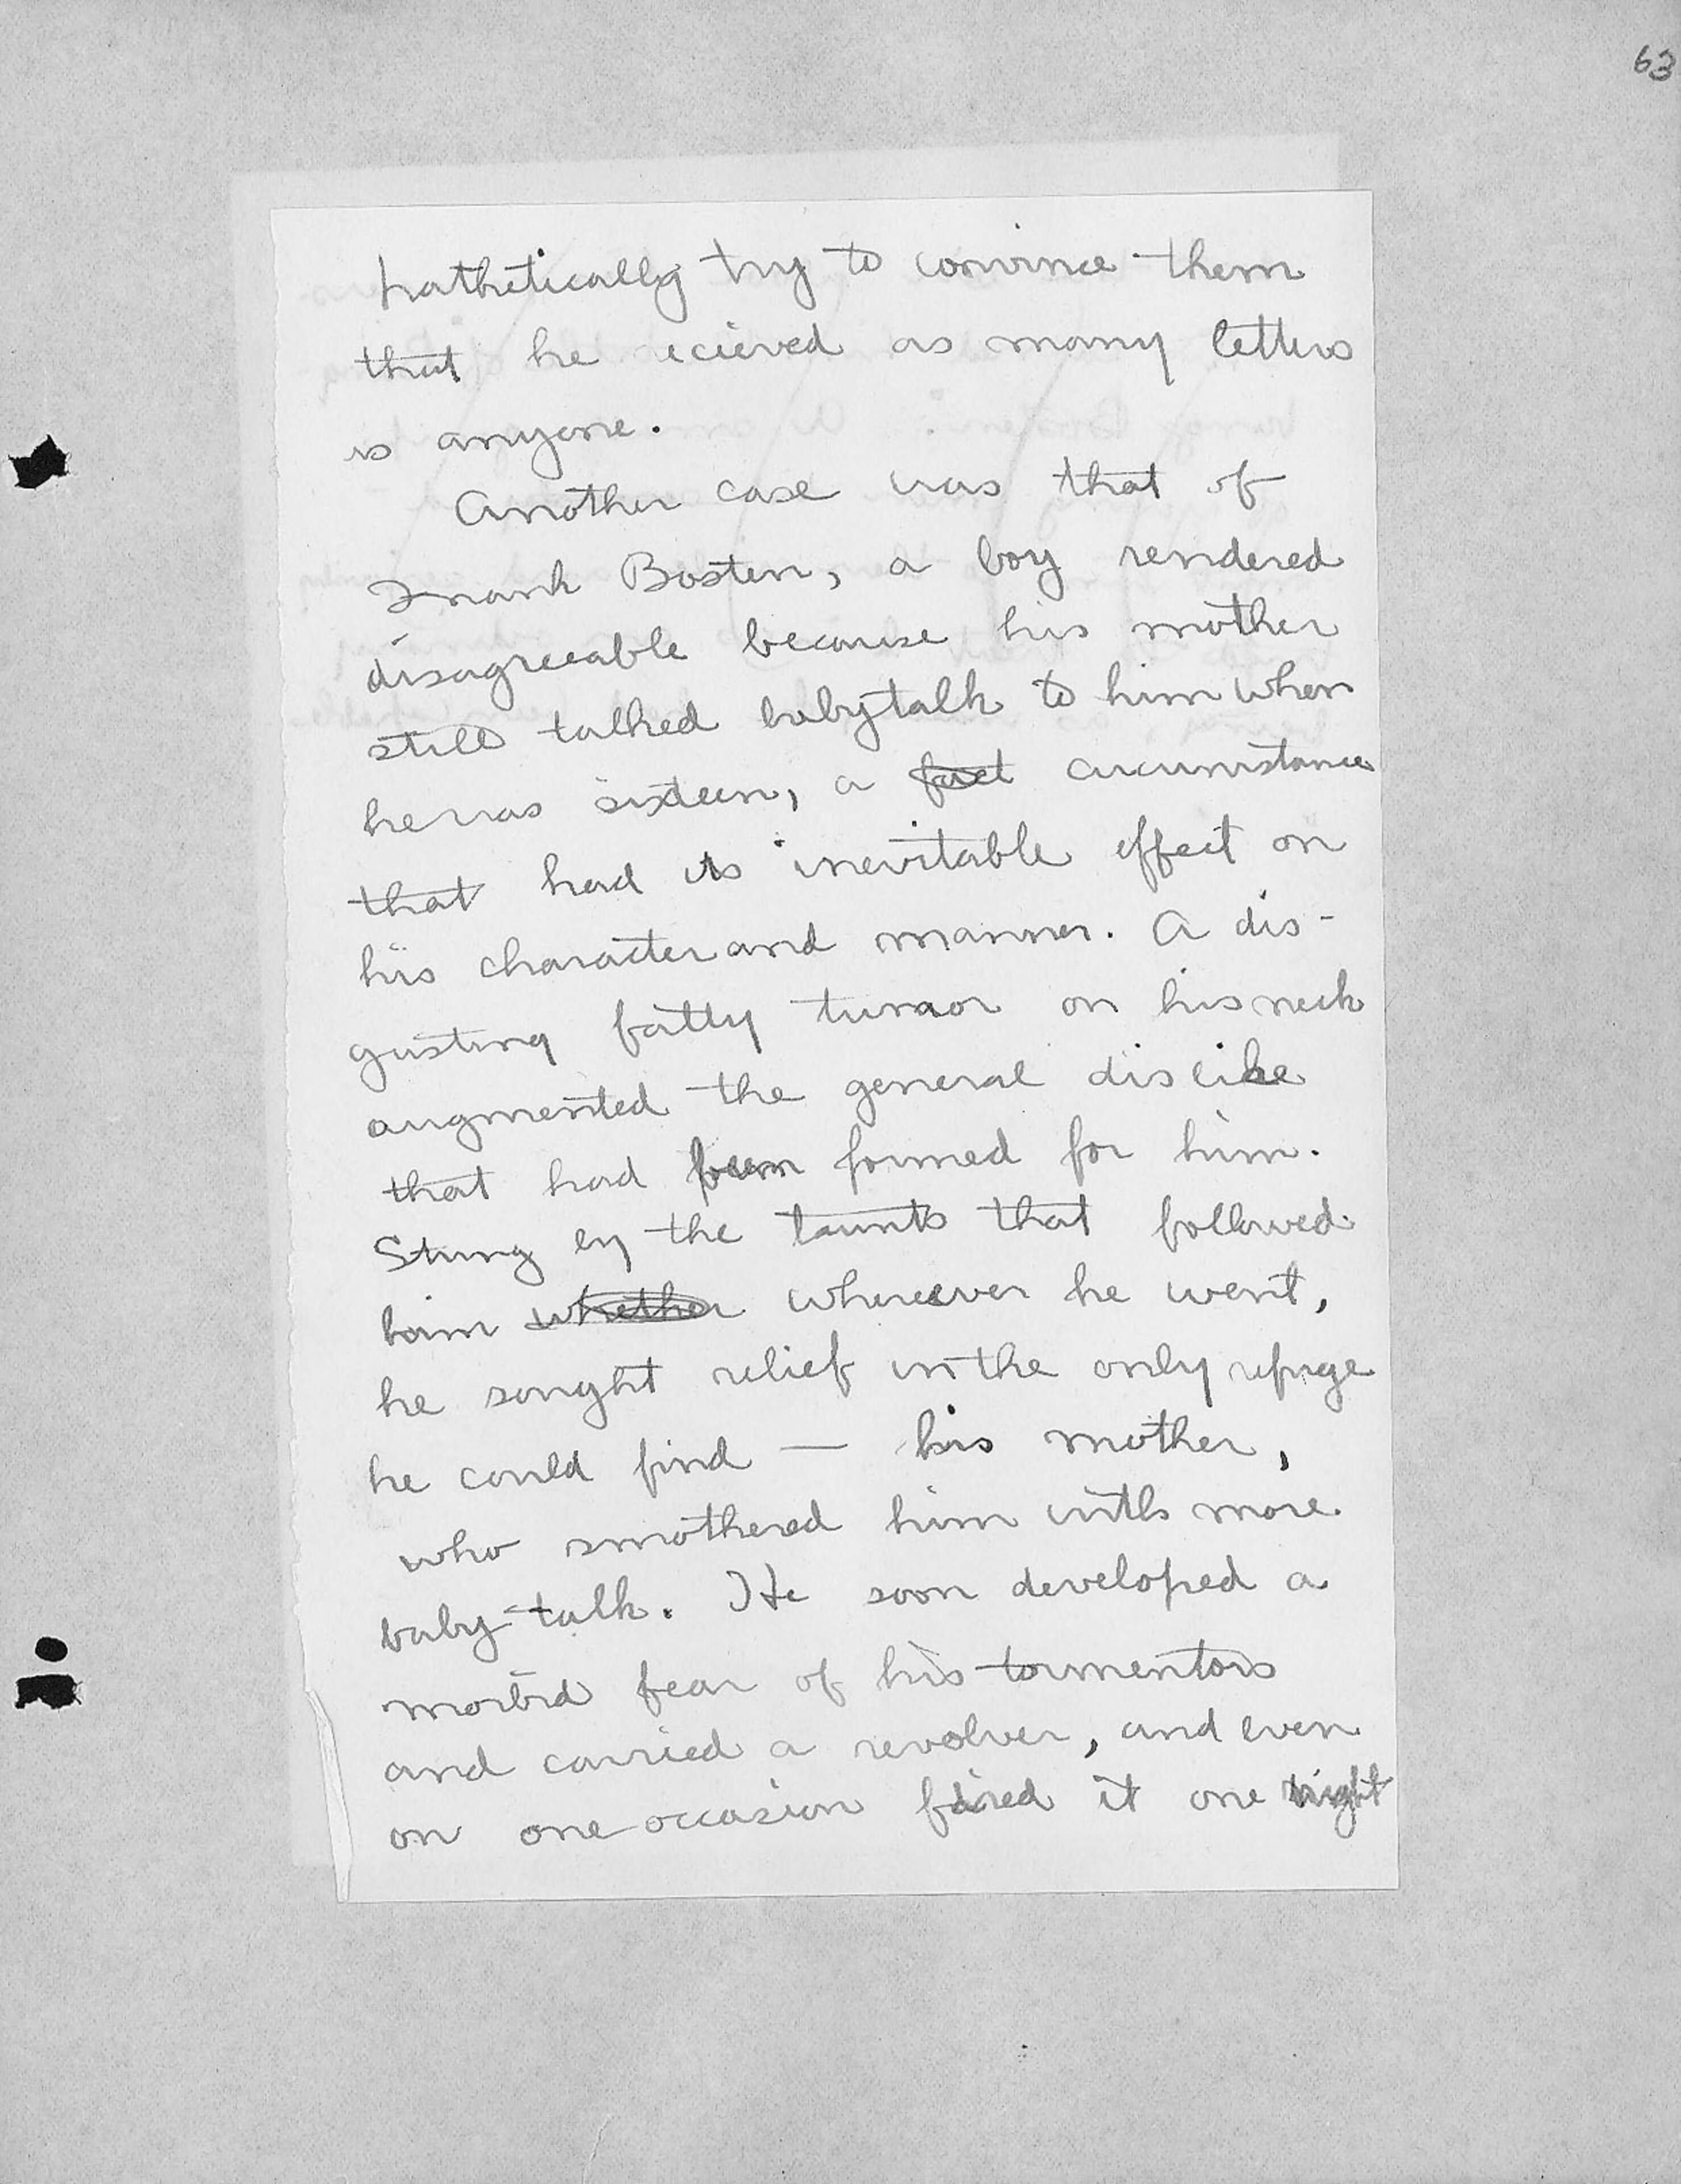 63
pathetically try to convince them
that he recieved as many letters
as anyone.
Another case was that of
Frank Bosten, a boy rendered
disagreeable because his mother
still talked babytalk to him when
he was sixteen, a fact circumstance
that had its inevitable effect on
his character and manner. A dis-
gusting fatty tumor on his neck
augmented the general dislike
that had been formed for him.
Stung by the taunts that followed
him whether whereever he went,
he sought relief in the only refuge
he could find — his mother,
who smothered him with more
baby talk. He soon developed a
morbid fear of his tormentors
and carried a revolver, and even
on one occasion fired it one night